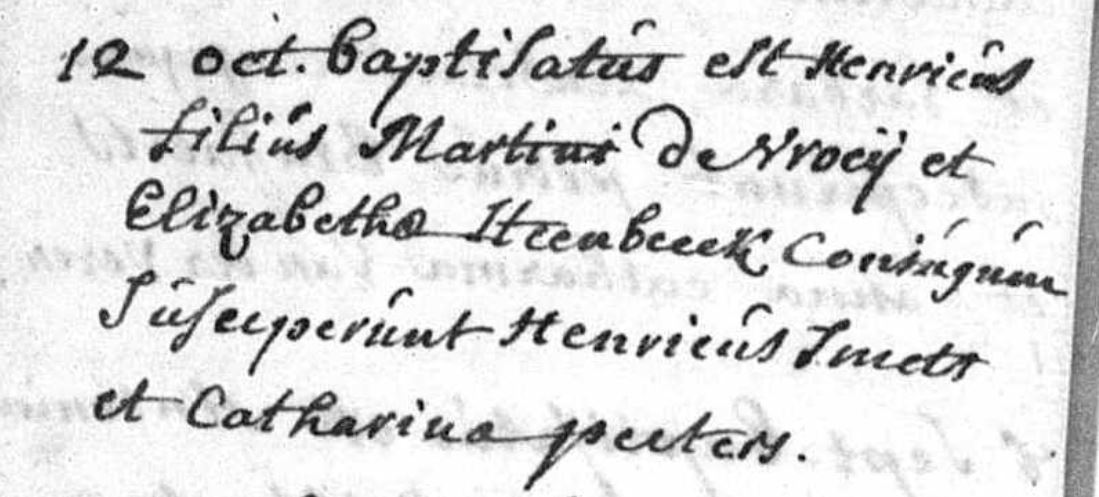 12 oct. baptisatús est Henricús
filiús Martini de Vrocÿ et
Elizabetha Steenbeeck Coniúgúm
Súsceperúnt Henricús Smets
et Catharina peeters.